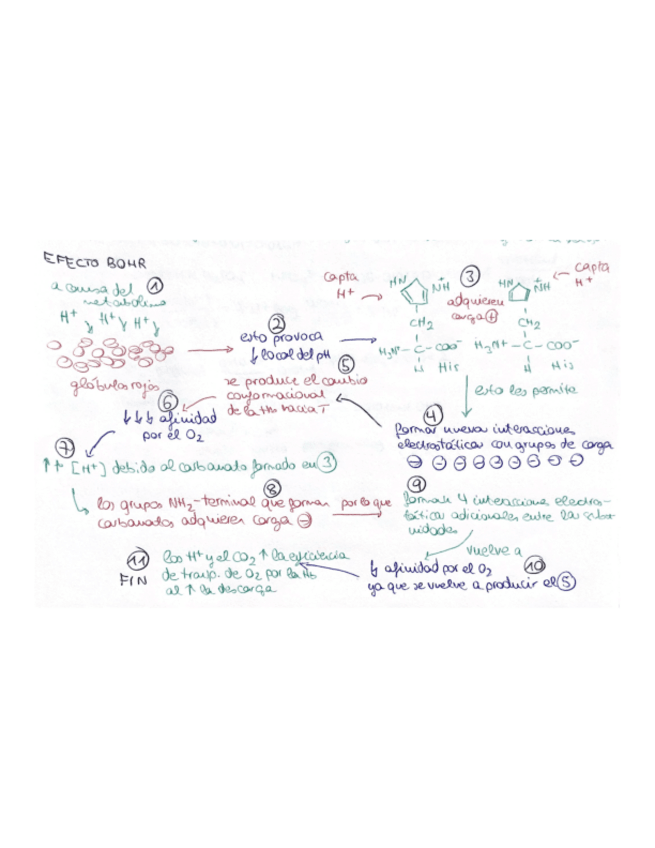 EFECTO BOHR
a causa del ①
metabolismo
H⁺ H⁺ H⁺
glóbulos rojos
②
esto provoca
↓ local del pH
capta
H⁺
HN NH
CH₂
H₃N⁺ – C – COO⁻
H His
③
adquieren
carga ⊕
capta
H⁺
HN NH
CH₂
H₃N⁺ – C – COO⁻
H His
esto les permite
④
formar nuevas interacciones
electrostáticas con grupos de carga
⊖ ⊖ ⊖ ⊖ ⊖ ⊖ ⊖ ⊖
⑤
se produce el cambio
conformacional
de la Hb hacia T
⑥
↓↓↓ afinidad
por el O₂
⑦
↑↑ [H⁺] debido al carbamato formado en ③
⑧
los grupos NH₂-terminal que forman
carbamatos adquieren carga ⊖
por lo que
⑨
forman 4 interacciones electros-
tática adicionales entre las subu-
nidades
vuelve a
↓ afinidad por el O₂ ⑩
ya que se vuelve a producir el ⑤
⑪
FIN
los H⁺ y el CO₂ ↑ la eficiencia
de transp. de O₂ por la Hb
al ↑ la descarga